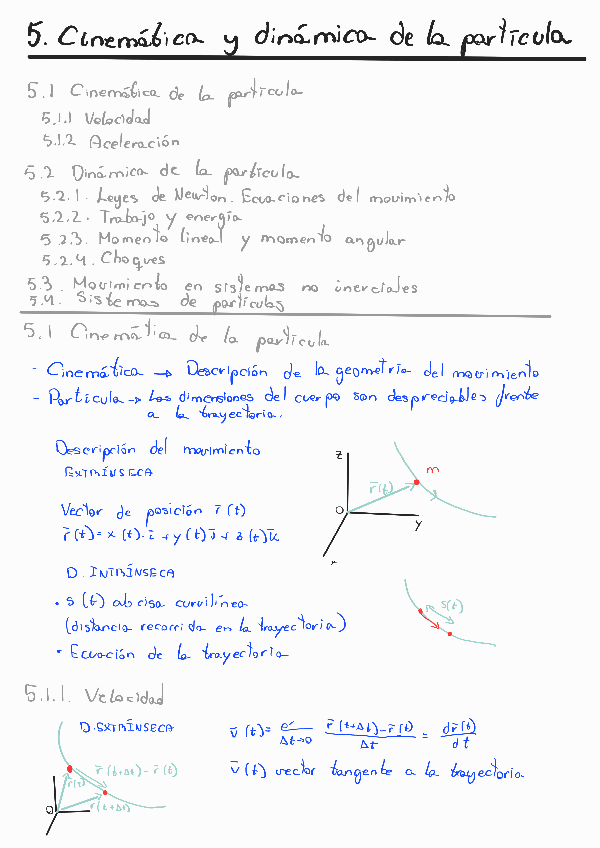 5. Cinemática y dinámica de la partícula
5.1 Cinemática de la partícula
5.1.1 Velocidad
5.1.2 Aceleración
5.2 Dinámica de la partícula
5.2.1. Leyes de Newton. Ecuaciones del movimiento
5.2.2. Trabajo y energía
5.2.3. Momento lineal y momento angular
5.2.4. Choques
5.3. Movimiento en sistemas no inerciales
5.4. Sistemas de partículas
5.1 Cinemática de la partícula
- Cinemática → Descripción de la geometría del movimiento
- Partícula → Las dimensiones del cuerpo son despreciables frente
a la trayectoria.
Descripción del movimiento
EXTRÍNSECA
Vector de posición r̄(t)
r̄(t) = x(t)·ī + y(t)j̄ + z(t)k̄
z
m
r̄(t)
O
y
D. INTRÍNSECA
• s(t) abcisa curvilínea
(distancia recorrida en la trayectoria)
• Ecuación de la trayectoria
s(t)
5.1.1. Velocidad
D. EXTRÍNSECA
v̄(t) = Δt→0 r̄(t+Δt)-r̄(t) / Δt = dr̄(t) / dt
v̄(t) vector tangente a la trayectoria
r̄(t+Δt) - r̄(t)
r̄(t)
O
r̄(t+Δt)